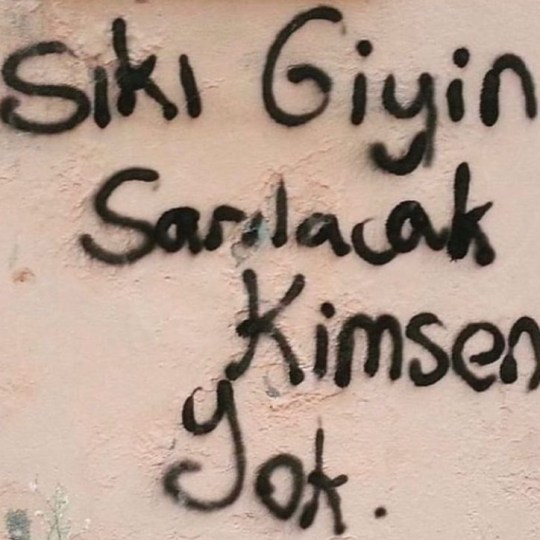 Sıkı Giyin
Sarılacak
Kimsen
Yok.